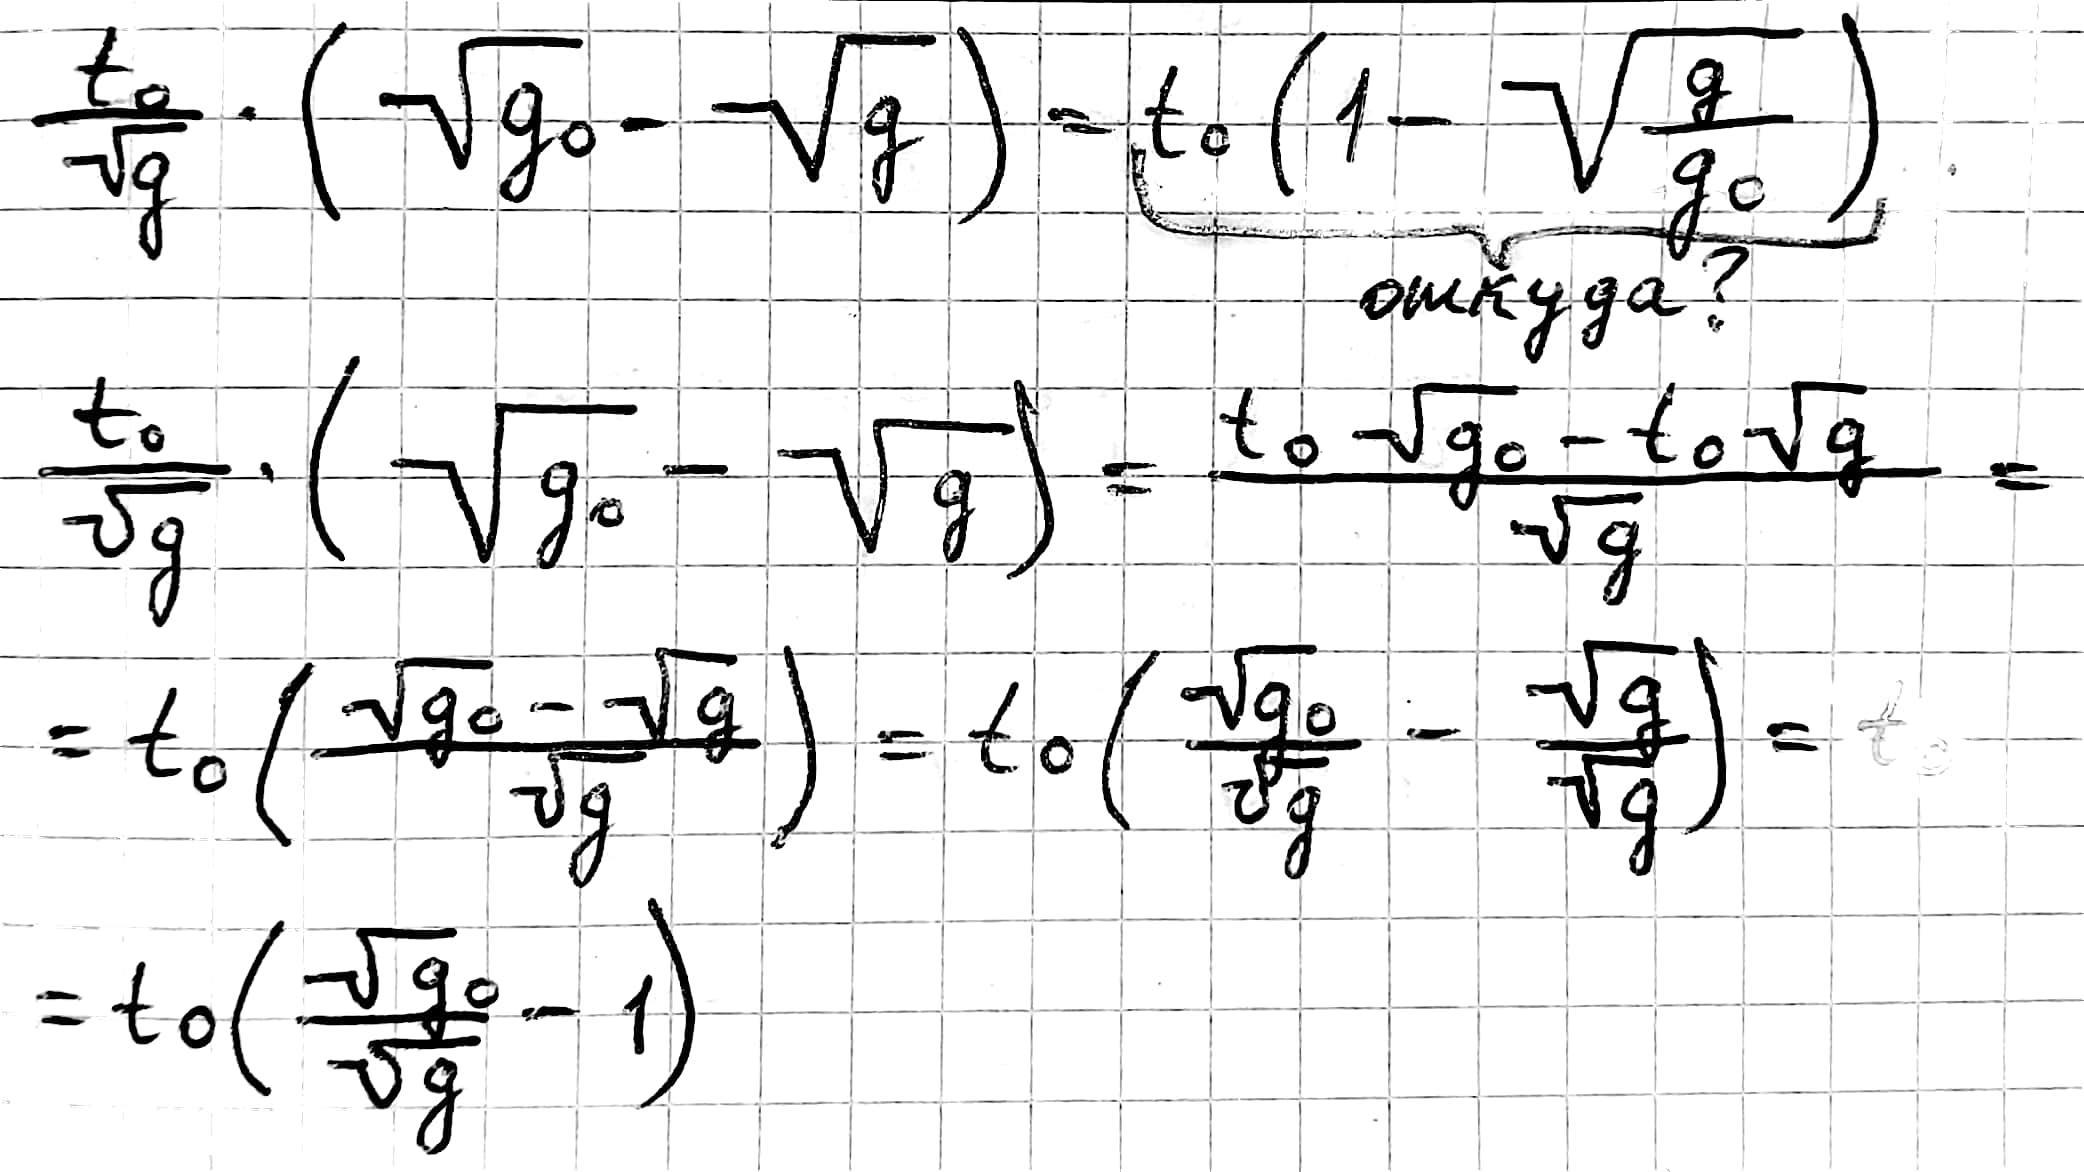 t₀/√g · (√g₀ - √g) = t₀(1 - √(g/g₀))
откуда?
t₀/√g · (√g₀ - √g) = (t₀√g₀ - t₀√g)/√g =
= t₀((√g₀ - √g)/√g) = t₀(√g₀/√g - √g/√g) = t₀
= t₀(√g₀/√g - 1)